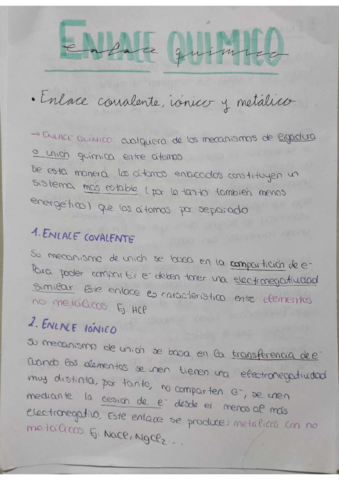 ENLACE QUÍMICO
enlace químico
• Enlace covalente, iónico y metálico
→ ENLACE QUÍMICO: cualquiera de los mecanismos de ligadura
o unión química entre átomos
De esta manera, los átomos enlazados constituyen un
sistema más estable (por lo tanto también menos
energético) que los átomos por separado
1. ENLACE COVALENTE
Su mecanismo de unión se basa en la compartición de e-
Para poder compartir e- deben tener una electronegatividad
similar. Este enlace es característico entre elementos
no metálicos Ej. HCl
2. ENLACE IÓNICO
Su mecanismo de unión se basa en la transferencia de e-
Cuando los elementos se unen tienen una electronegatividad
muy distinta, por tanto, no comparten e-, se unen
mediante la cesión de e- desde el menos al más
electronegativo. Este enlace se produce: metálico con no
metálicos Ej. NaCl, MgCl2...